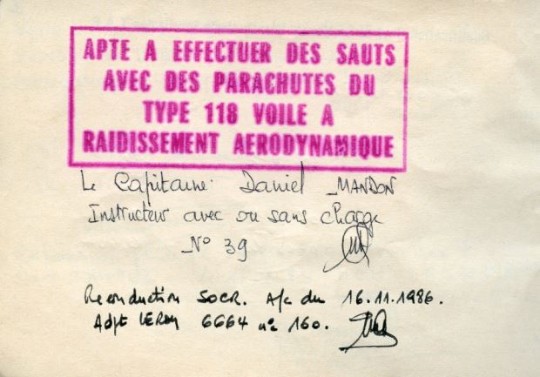 APTE A EFFECTUER DES SAUTS
AVEC DES PARACHUTES DU
TYPE 118 VOILE A
RAIDISSEMENT AERODYNAMIQUE
Le Capitaine Daniel MANDON
Instructeur avec ou sans charge
N° 39
Reconduction SOCR. A/c du 16.11.1986.
Adjt LEROY 6664 n° 160.